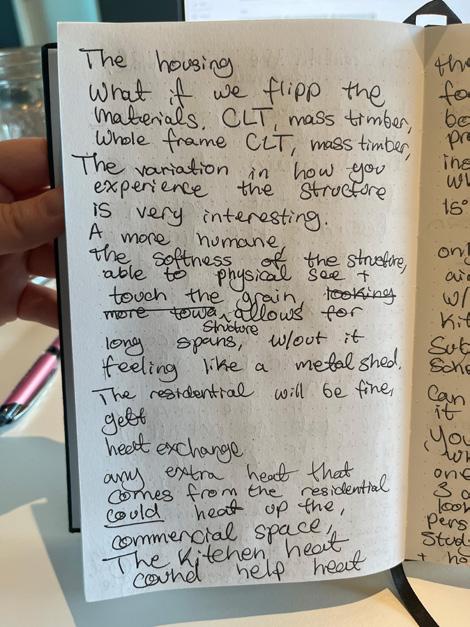 The housing
What if we flipp the
materials. CLT, mass timber,
Whole frame CLT, mass timber,
The variation in how you
experience the structure
is very interesting.
A more humane,
the softness of the structure,
able to physical see +
touch the grain looking
more towa allows for
structure
long spans, w/out it
feeling like a metal shed.
The residential will be fine,
gebt
heat exchange
any extra heat that
comes from the residential
could heat up the,
commercial space,
The Kitchen heat
could help heat
the
ins
15°
on
air
w/
Kit
Sub
Can
it
You
one
3
look
pers
Stud
+ ho